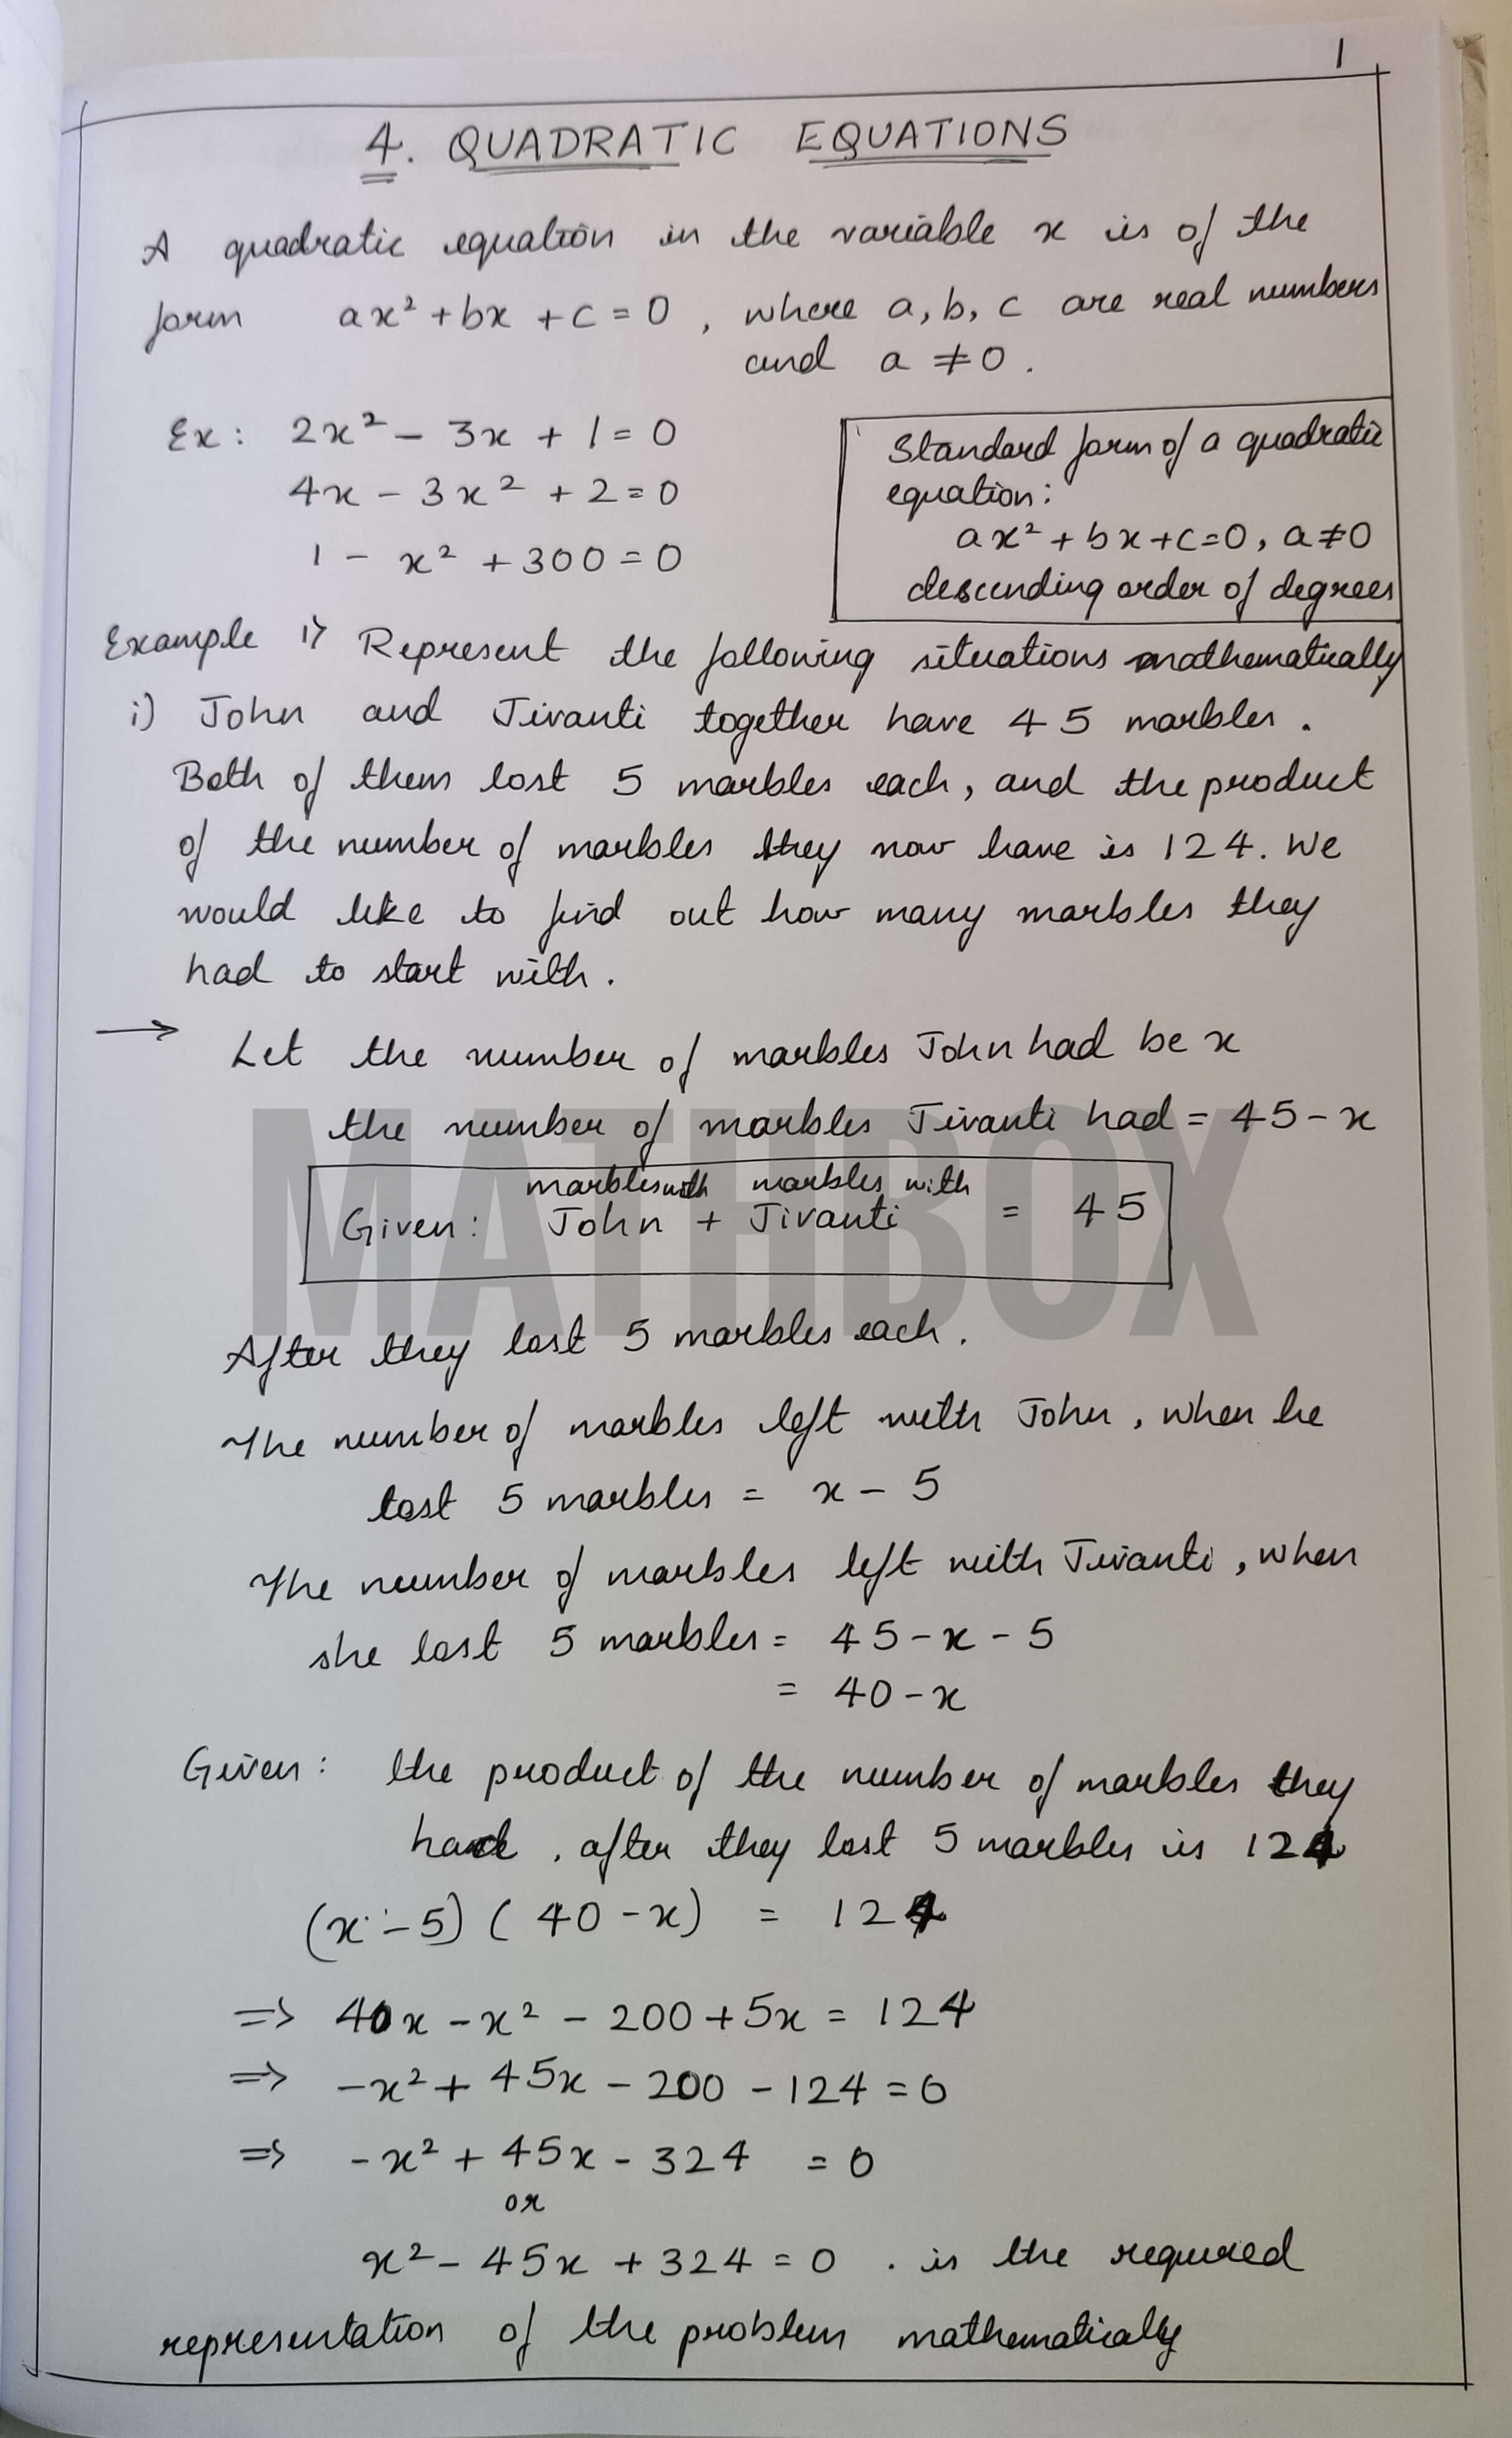 1
4. QUADRATIC EQUATIONS
A quadratic equation in the variable x is of the
form ax² + bx + c = 0 , where a, b, c are real numbers
and a ≠ 0 .
Ex : 2x² - 3x + 1 = 0
4x - 3x² + 2 = 0
1 - x² + 300 = 0
Standard form of a quadratic
equation :
ax² + bx + c = 0 , a ≠ 0
descending order of degrees
Example 1) Represent the following situations mathematically
i) John and Jivanti together have 45 marbles .
Both of them lost 5 marbles each, and the product
of the number of marbles they now have is 124. We
would like to find out how many marbles they
had to start with .
→ Let the number of marbles John had be x
the number of marbles Jivanti had = 45 - x
marbles with marbles with
Given : John + Jivanti = 45
MATHBOX
After they lost 5 marbles each .
The number of marbles left with John , when he
lost 5 marbles = x - 5
The number of marbles left with Jivanti , when
she lost 5 marbles = 45 - x - 5
= 40 - x
Given : the product of the number of marbles they
had , after they lost 5 marbles is 124
(x - 5) ( 40 - x) = 124
=> 40x - x² - 200 + 5x = 124
=> -x² + 45x - 200 - 124 = 0
=> -x² + 45x - 324 = 0
or
x² - 45x + 324 = 0 . is the required
representation of the problem mathematically